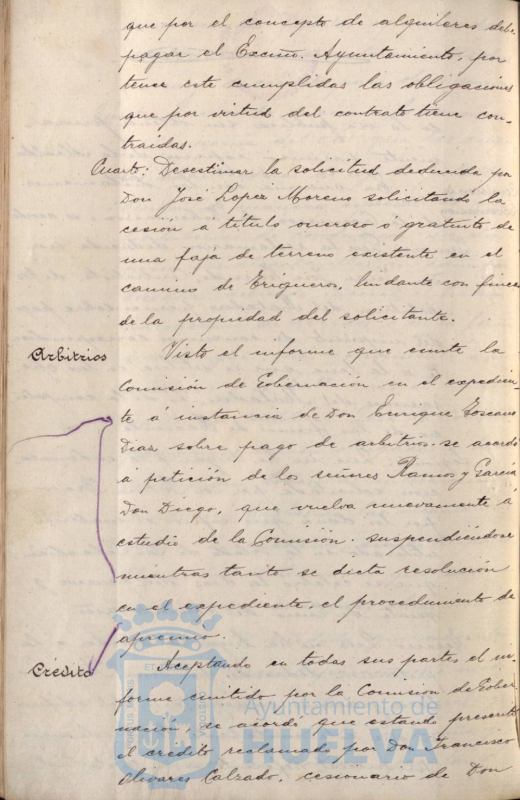 que por el concepto de alquileres debe
pagar el Excmo. Ayuntamiento, por
tener este cumplidas las obligaciones
que por virtud del contrato tiene con-
traidas.
Cuarto: Desestimar la solicitud deducida por
Don José Lopez Moreno solicitando la
cesión a título oneroso ó gratuito de
una faja de terreno existente en el
camino de Trigueros, lindante con fincas
de la propiedad del solicitante.
Arbitrios
Visto el informe que emite la
Comisión de Gobernación en el expedien-
te á instancia de Don Enrique Toscano
Diaz sobre pago de arbitrios. se acordó
á petición de los señores Ramos y García
Don Diego, que vuelva nuevamente á
estudio de la Comisión. suspendiéndose
mientras tanto se dicta resolución
en el expediente, el procedimiento de
apremio.
Crédito
Aceptando en todas sus partes el in-
forme emitido por la Comision de Gober-
nación, se acordó que estando prescrito
el crédito reclamado por Don Francisco
Olivares Calzado, cesionario de Don
Ayuntamiento de
HUELVA